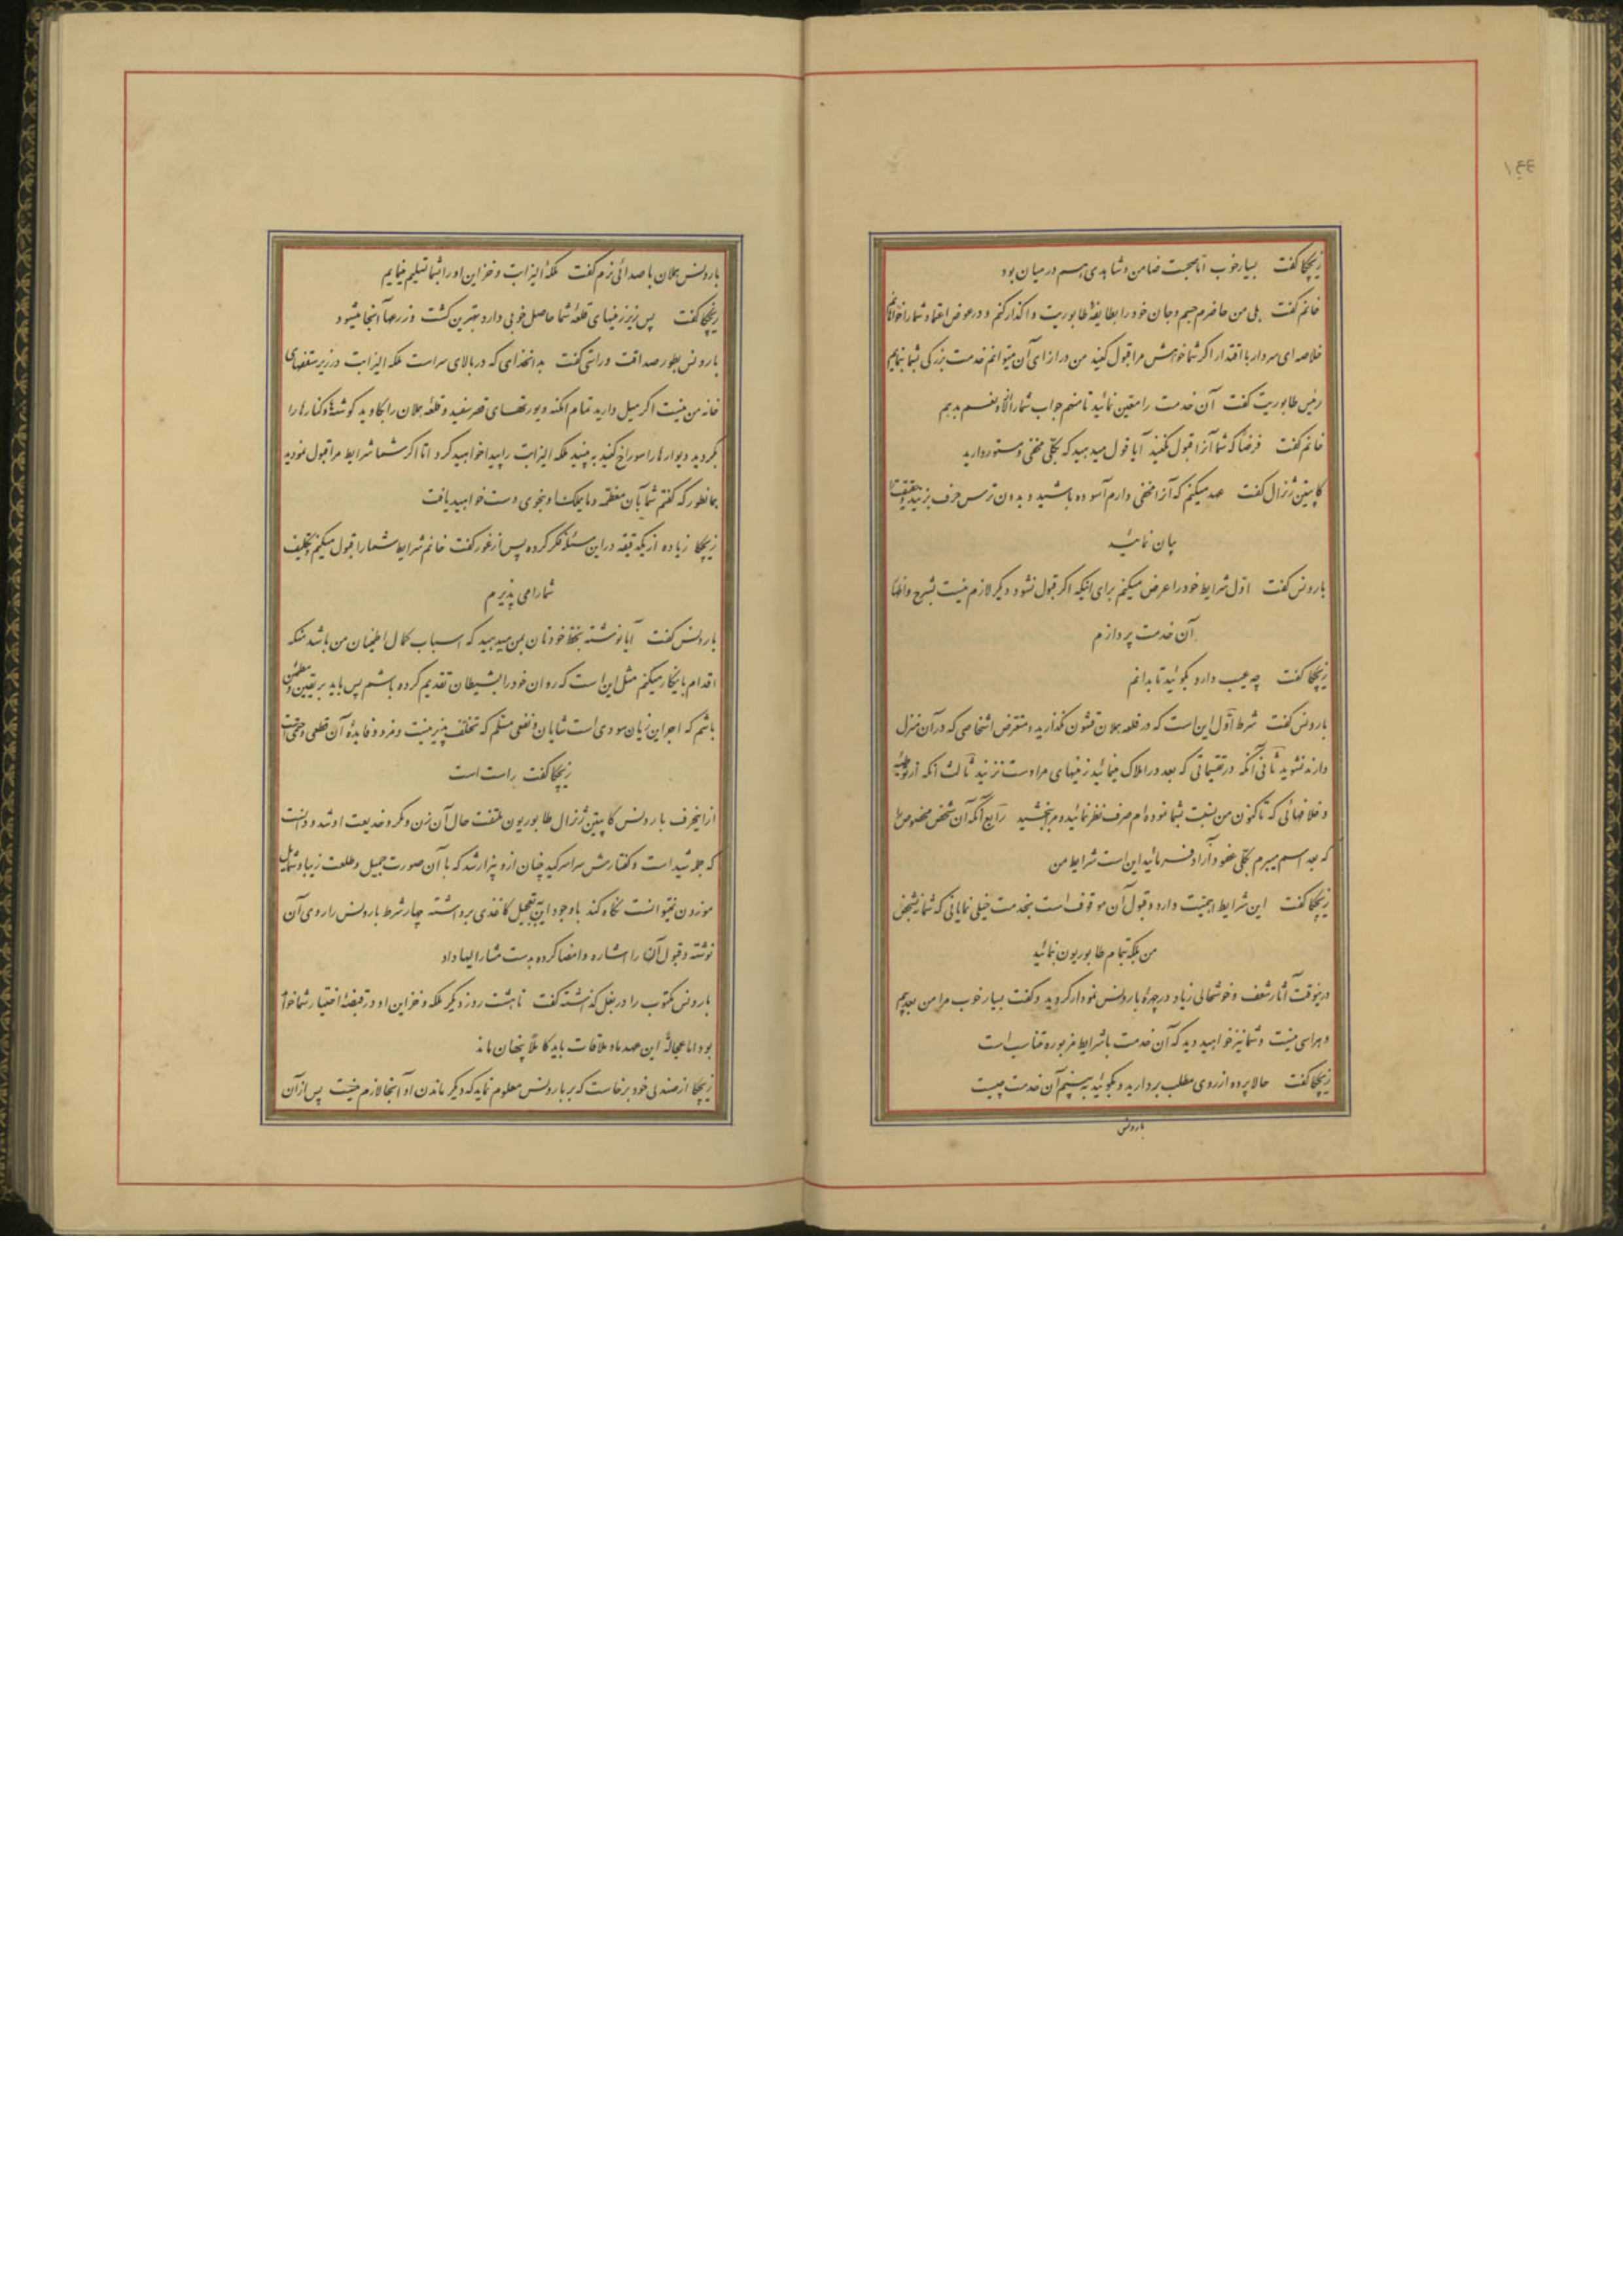 ۱۴۴
زیچکا گفت بسیار خوب اما صحبت ضامن و شاهدی هم در میان بود
خانم گفت بلی من حاضرم جسم و جان خود را بطایفهٔ طابوریت واگذار کنم و در عوض اعتماد شما را
خلاصه ای سردار با اقتدار اگر شما خواهش مرا قبول کنید من در ازای آن میتوانم خدمت بزرگی بشما بنمایم
رئیس طابوریت گفت آن خدمت را معین نمائید تا منهم جواب شما را لا و نعم بدهم
خانم گفت فرضاً که شما آنرا قبول نکنید آیا قول میدهید که بکلی مخفی و مستور دارید
کاپیتن ژنرال گفت عهد میکنم که آنرا مخفی دارم آسوده باشید و بدون ترس حرف بزنید و حقیقت را
بیان نمائید
بارونس گفت اول شرایط خود را عرض میکنم برای اینکه اگر قبول نشود دیگر لازم نیست بشرح و اظهار
آن خدمت پردازم
زیچکا گفت چه عیب دارد بگوئید تا بدانم
بارونس گفت شرط اول این است که در قلعه هملان قشون نگذارید و متعرض اشخاصی که در آن منزل
دارند نشوید ثانی آنکه در تقسیماتی که بعد در املاک مینمائید زمینهای مرا دست نزنید ثالث آنکه از
و خلافهائی که تاکنون من نسبت بشما نموده‌ام صرف نظر نمائید و مرا ببخشید رابع آنکه آن شخص مخصوص را
که بعد اسم میبرم بکلی عفو و آزاد فرمائید این است شرایط من
زیچکا گفت این شرایط اهمیت دارد و قبول آن موقوف است بخدمت خیلی نمایانی که شما بشخص
من بلکه بتمام طابوریون بنمائید
درینوقت آثار شعف و خوشحالی زیاد در چهرهٔ بارونس نمودار گردید و گفت بسیار خوب مرا من بعد بیم
و هراسی نیست و شما نیز خواهید دید که آن خدمت با شرایط مزبوره متناسب است
زیچکا گفت حالا پرده از روی مطلب بردارید و بگوئید به بینیم آن خدمت چیست
بارونس
بارونس هملان با صدائی نرم گفت ملکهٔ الیزابت و خزاین او را بشما تسلیم مینمایم
زیچکا گفت پس زیر زمینهای قلعهٔ شما حاصل خوبی دارد بهترین کشت و زرعها آنجا میشود
بارونس بطور صداقت و راستی گفت بدان خدای که در بالای سر است ملکه الیزابت در زیر سقفهای
خانه من نیست اگر میل دارید تمام امکنه و بیورتهای قصر سفید و قلعهٔ هملان را بکاوید گوشه‌ها و کنارها را
بگردید دیوارها را سوراخ کنید به بینید ملکه الیزابت را پیدا خواهید کرد اما اگر شما شرایط مرا قبول نمودید
بهمانطور که گفتم شما بآن معظمه و مایملک او بخوبی دست خواهید یافت
زیچکا زیاده از یکدقیقه در این مسئله فکر کرده پس از غور گفت خانم شرایط شما را قبول میکنم و تکلیف
شما را می پذیرم
بارونس گفت آیا نوشته بخط خودتان بمن میدهید که اسباب کمال اطمینان من باشد منکه
اقدام باینکار میکنم مثل این است که روان خود را بشیطان تقدیم کرده باشم پس باید بر یقین و مطمئن
باشم که اجر این زیان سودی است شایان و نفعی مسلم که تخلف پذیر نیست و مزد و فایدهٔ آن قطعی و حتمی است
زیچکا گفت راست است
ازینحرف بارونس کاپیتن ژنرال طابوریون ملتفت حال آن زن و مکر و خدیعت او شد و دانست
که جمله شید است و گفتارش سراسر کید چنان ازو بیزار شد که با آن صورت جمیل و طلعت زیبا و شمایل
موزون نمیتوانست نگاه کند باوجود این بتعجیل کاغذی برداشته چهار شرط بارونس را روی آن
نوشته و قبول آن را اشاره و امضا کرده بدست مشارالیها داد
بارونس مکتوب را در بغل گذاشته گفت تا هشت روز دیگر ملکه و خزاین او در قبضهٔ اختیار شما خواهد
بود اما عجالةً این عهد و ملاقات باید کاملاً پنهان ماند
زیچکا از صندلی خود برخاست که بر بارونس معلوم نماید که دیگر ماندن او آنجا لازم نیست پس از آن